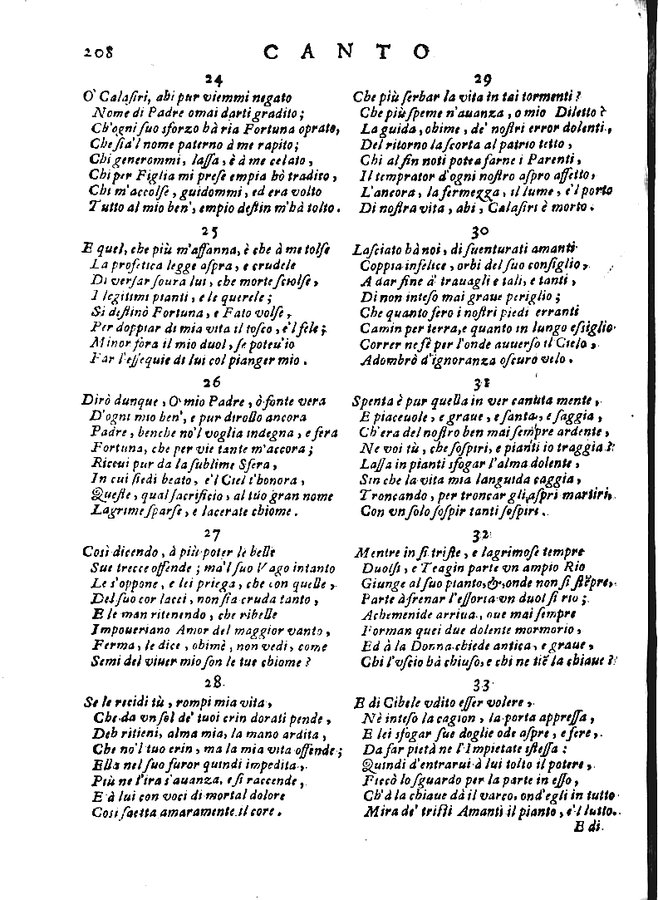 208 CANTO
24
O' Calasiri, ahi pur viemmi negato
Nome di Padre omai darti gradito;
Ch'ogni suo sforzo hà ria Fortuna oprato,
Che sia'l nome paterno à me rapito;
Chi generommi, lassa, è à me celato,
Chi per Figlia mi prese empia hò tradito,
Chi m'accolse, guidommi, ed era volto
Tutto al mio ben', empio destin m'hà tolto.
25
E quel, che più m'affanna, è che à me tolse
La profetica legge aspra, e crudele
Di versar soura lui, che morte sciolse,
I legitimi pianti, e le querele;
Si destinò Fortuna, e Fato volse,
Per doppiar di mia vita il tosco, e'l fele;
Minor fora il mio duol, se poteu'io
Far l'essequie di lui col pianger mio.
26
Dirò dunque, O' mio Padre, ò fonte vera
D'ogni mio ben', e pur dirollo ancora
Padre, benche nol voglia indegna, e fera
Fortuna, che per vie tante m'accora;
Riceui pur da la sublime Sfera,
In cui siedi beato, e'l Ciel t'honora,
Queste, qual sacrificio, al tuo gran nome
Lagrime sparse, e lacerate chiome.
27
Così dicendo, à più poter le belle
Sue trecce offende; ma'l suo Vago intanto
Le s'oppone, e lei priega, che con quelle,
Del suo cor lacci, non sia cruda tanto,
E le man ritenendo, che ribelle
Impoueriano Amor del maggior vanto,
Ferma, le dice, obimè, non vedi, come
Semi del viuer mio son le tue chiome?
28.
Se le recidi tù, rompi mia vita,
Che da vn sol de' tuoi crin dorati pende,
Deh ritieni, alma mia, la mano ardita,
Che no'l tuo crin, ma la mia vita offende;
Ella nel suo furor quindi impedita,
Più ne l'ira s'auanza, e si raccende,
E à lui con voci di mortal dolore
Così saetta amaramente il core.
29
Che più serbar la vita in tai tormenti?
Che più speme n'auanza, o mio Diletto?
La guida, ohime, de' nostri error dolenti,
Del ritorno la scorta al patrio tetto,
Chi al fin noti potea farne i Parenti,
Il temprator d'ogni nostro aspro affetto,
L'ancora, la fermezza, il lume, e'l porto
Di nostra vita, ahi, Calasiri è morto.
30
Lasciato hà noi, di suenturati amanti
Coppia infelice, orbi del suo consiglio,
A dar fine à trauagli e tali, e tanti,
Di non inteso mai graue periglio;
Che quanto fero i nostri piedi erranti
Camin per terra, e quanto in lungo essiglio
Correr ne fè per l'onde auuerso il Cielo,
Adombrò d'ignoranza oscuro velo.
31
Spenta è pur quella in ver canuta mente,
E piaceuole, e graue, e santa, e saggia,
Ch'era del nostro ben mai sempre ardente,
Ne voi tù, che sospiri, e pianti io traggia?
Lassa in pianti sfogar l'alma dolente,
Sin che la vita mia languida caggia,
Troncando, per troncar gli aspri martiri,
Con vn solo sospir tanti sospiri.
32
Mentre in sì triste, e lagrimose tempre
Duolsi, e Teagin parte vn ampio Rio
Giunge al suo pianto, &, onde non si stēpre,
Parte à frenar l'essorta vn duol sì rio;
Achemenide arriua, oue mai sempre
Forman quei due dolente mormorio,
Ed à la Donna chiede antica, e graue,
Chi l'vscio hà chiuso, e chi ne tiē la chiaue?
33
E di Cibele vdito esser volere,
Nè inteso la cagion, la porta appressa,
E lei sfogar sue doglie ode aspre, e fere,
Da far pietà ne l'Impietate istessa:
Quindi d'entrarui à lui tolto il potere,
Ficcò lo sguardo per la parte in essa,
Ch'à la chiaue dà il varco, ond'egli in tutto
Mira de' tristi Amanti il pianto, e'l lutto.
E di